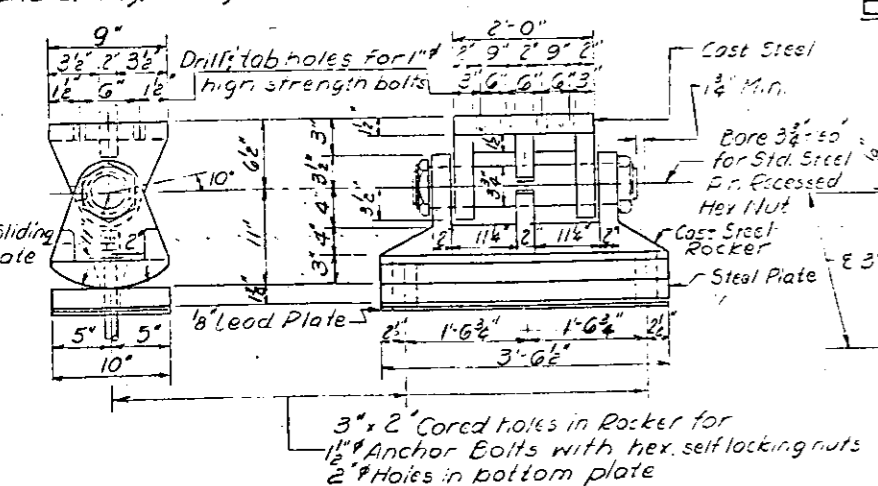 9"
3½" 2" 3½"
1½" 6" 1½"
Drill & tap holes for 1"ø
high strength bolts
2'-0"
2" 9" 2" 9" 2"
3" 6" 6" 6" 3"
Cast Steel
1¾" Min.
Bore 3¾"
for Std. Steel
Pin Recessed
Hex Nut
Cast Steel
Rocker
Steel Plate
10°
6½"
11"
3"
3½"
4"
4"
3"
1½"
1½"
3½"
3¾"
11"
2"
2" 11¼" 2" 11¼" 2"
Sliding
⅛" Lead Plate
5" 5"
10"
2½" 1'-6¾" 1'-6¾" 2½"
3'-6½"
3" x 2" Cored holes in Rocker for
1½"ø Anchor Bolts with hex. self locking nuts
2"ø Holes in bottom plate